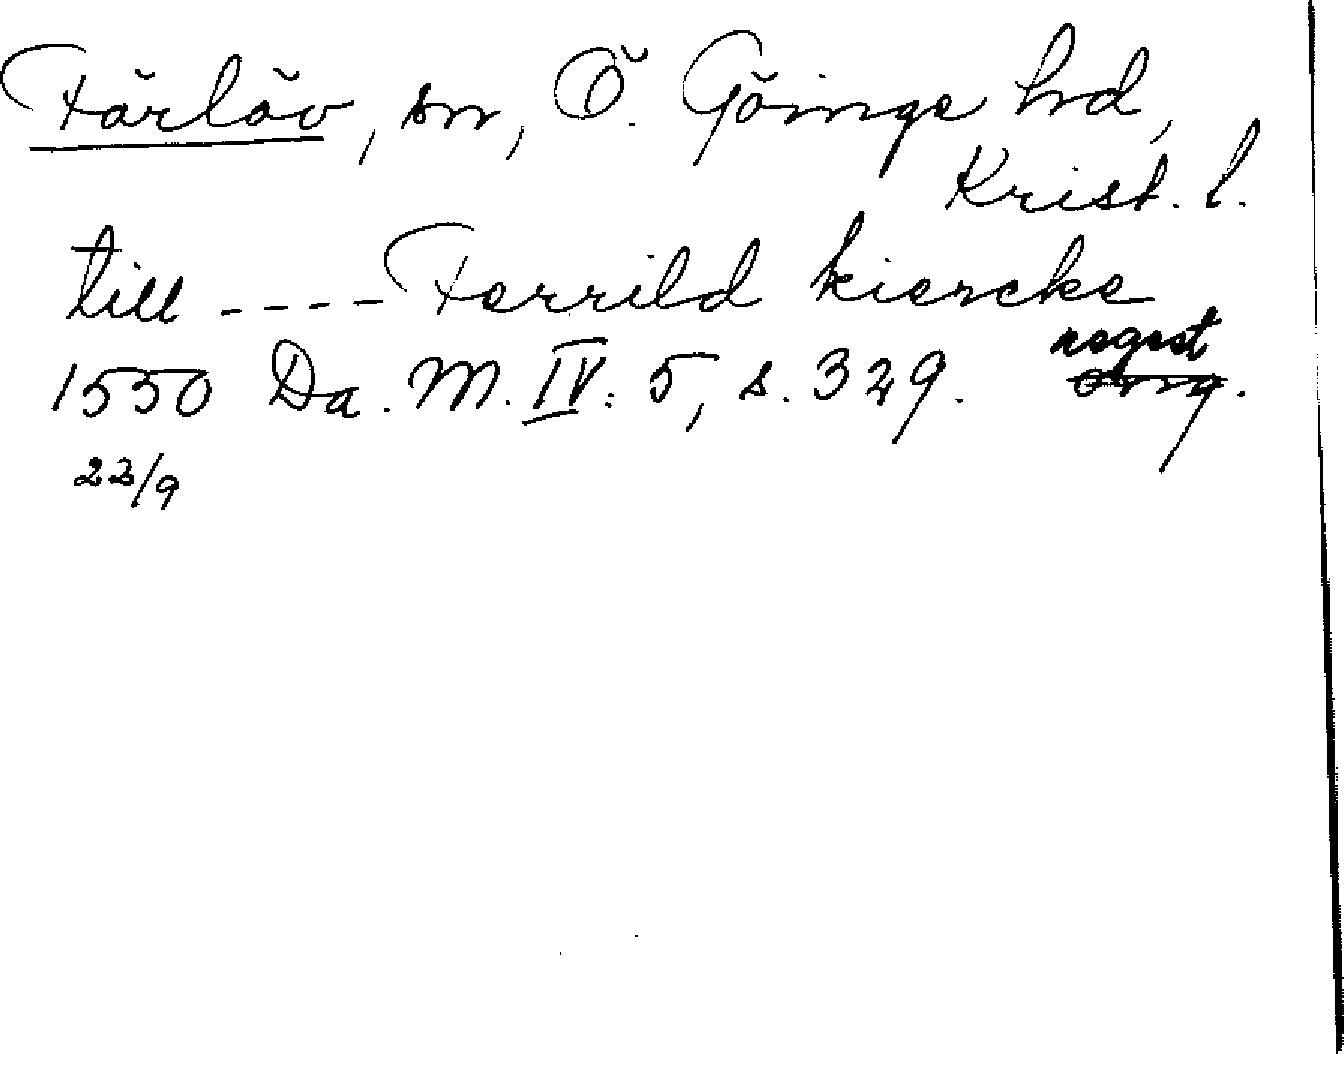 Färlöv, sn, Ö. Göinge hd,
Krist. l.
till ---- Ferrild kiercke
regest
1550 Da. M. IV: 5, s. 329. avng.
22/9